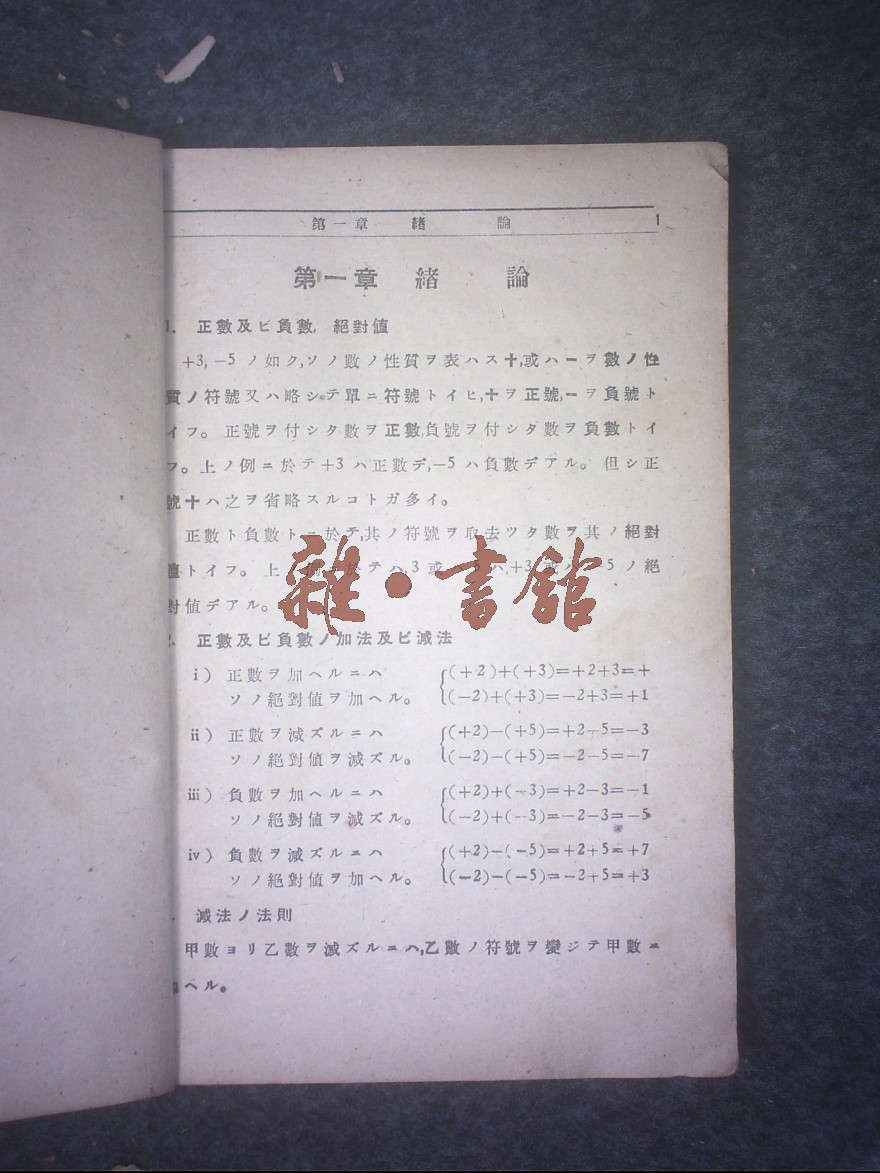 第一章 緒 論 1
第一章 緒 論
1. 正數及ビ負數, 絕對値
+3, −5 ノ如ク,ソノ數ノ性質ヲ表ハス十,或ハーヲ數ノ性
質ノ符號又ハ略シテ單ニ符號トイヒ,十ヲ正號,ーヲ負號ト
イフ。正號ヲ付シタ數ヲ正數,負號ヲ付シタ數ヲ負數トイ
フ。上ノ例ニ於テ+3ハ正數デ,−5ハ負數デアル。但シ正
號十ハ之ヲ省略スルコトガ多イ。
正數ト負數トニ於テ,其ノ符號ヲ取去ツタ數ヲ其ノ絕對
値トイフ。上ノ例ニ於テハ,3或ハ5ハ,+3或ハ−5ノ絕
對値デアル。
雜·書館
2. 正數及ビ負數ノ加法及ビ減法
i) 正數ヲ加ヘルニハ (+2)+(+3)=+2+3=+
ソノ絕對値ヲ加ヘル。 (−2)+(+3)=−2+3=+1
ii) 正數ヲ減ズルニハ (+2)−(+5)=+2−5=−3
ソノ絕對値ヲ減ズル。 (−2)−(+5)=−2−5=−7
iii) 負數ヲ加ヘルニハ (+2)+(−3)=+2−3=−1
ソノ絕對値ヲ減ズル。 (−2)+(−3)=−2−3=−5
iv) 負數ヲ減ズルニハ (+2)−(−5)=+2+5=+7
ソノ絕對値ヲ加ヘル。 (−2)−(−5)=−2+5=+3
減法ノ法則
甲數ヨリ乙數ヲ減ズルニハ,乙數ノ符號ヲ變ジテ甲數ニ
ヘル。